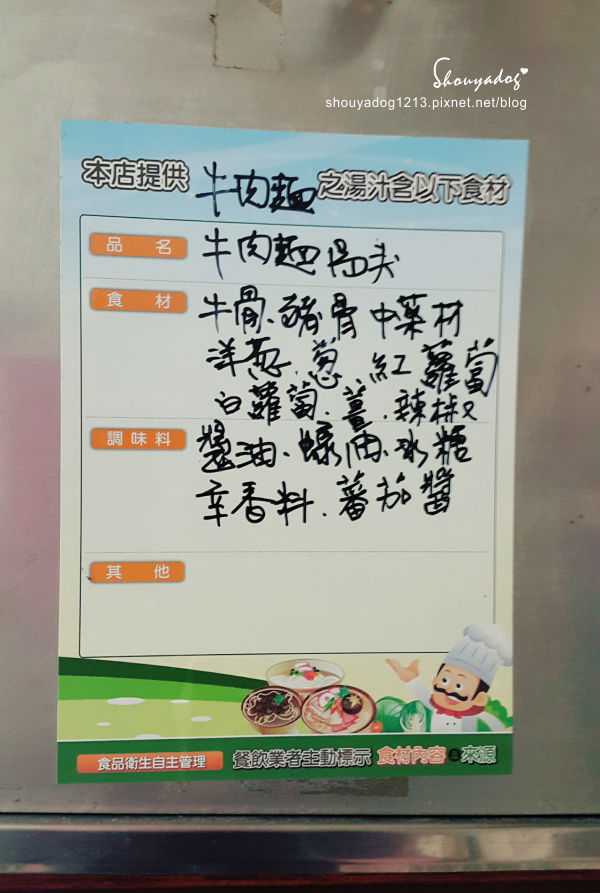 Shouyadog
shouyadog1213.pixnet.net/blog
本店提供 牛肉麵 之湯汁含以下食材
品名 牛肉麵 湯头
食材 牛骨、豬骨 中藥材
洋葱、蔥 紅蘿蔔
白蘿蔔、薑、辣椒
調味料 醬油、蠔油、冰糖
辛香料、蕃茄醬
其他
食品衛生自主管理 餐飲業者主動標示 食材內容 來源